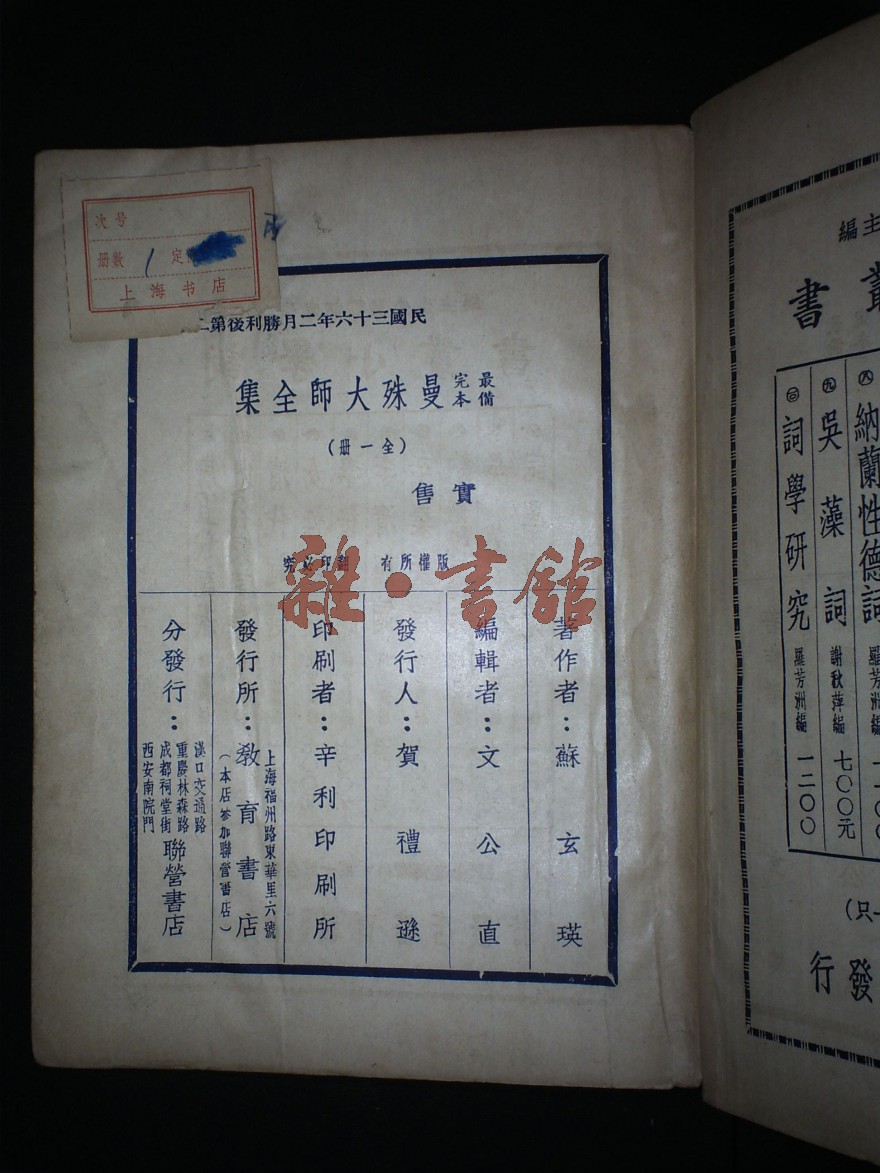 次号
册数 1 定
上海书店
民國三十六年二月勝利後第二
最備完本 曼殊大師全集
(全一册)
實售
版權所有 翻印必究
雜·書館
著作者：蘇玄瑛
編輯者：文公直
發行人：賀禮遜
印刷者：辛利印刷所
發行所：教育書店
上海福州路東華里六號
(本店參加聯營書店)
分發行：聯營書店
漢口交通路
重慶林森路
成都祠堂街
西安南院門
主編
叢書
㈧ 納蘭性德詞 羅芳洲編
㈨ 吳藻詞 謝秋萍編 七〇〇元
㈩ 詞學研究 羅芳洲編 一二〇〇
(只
發行